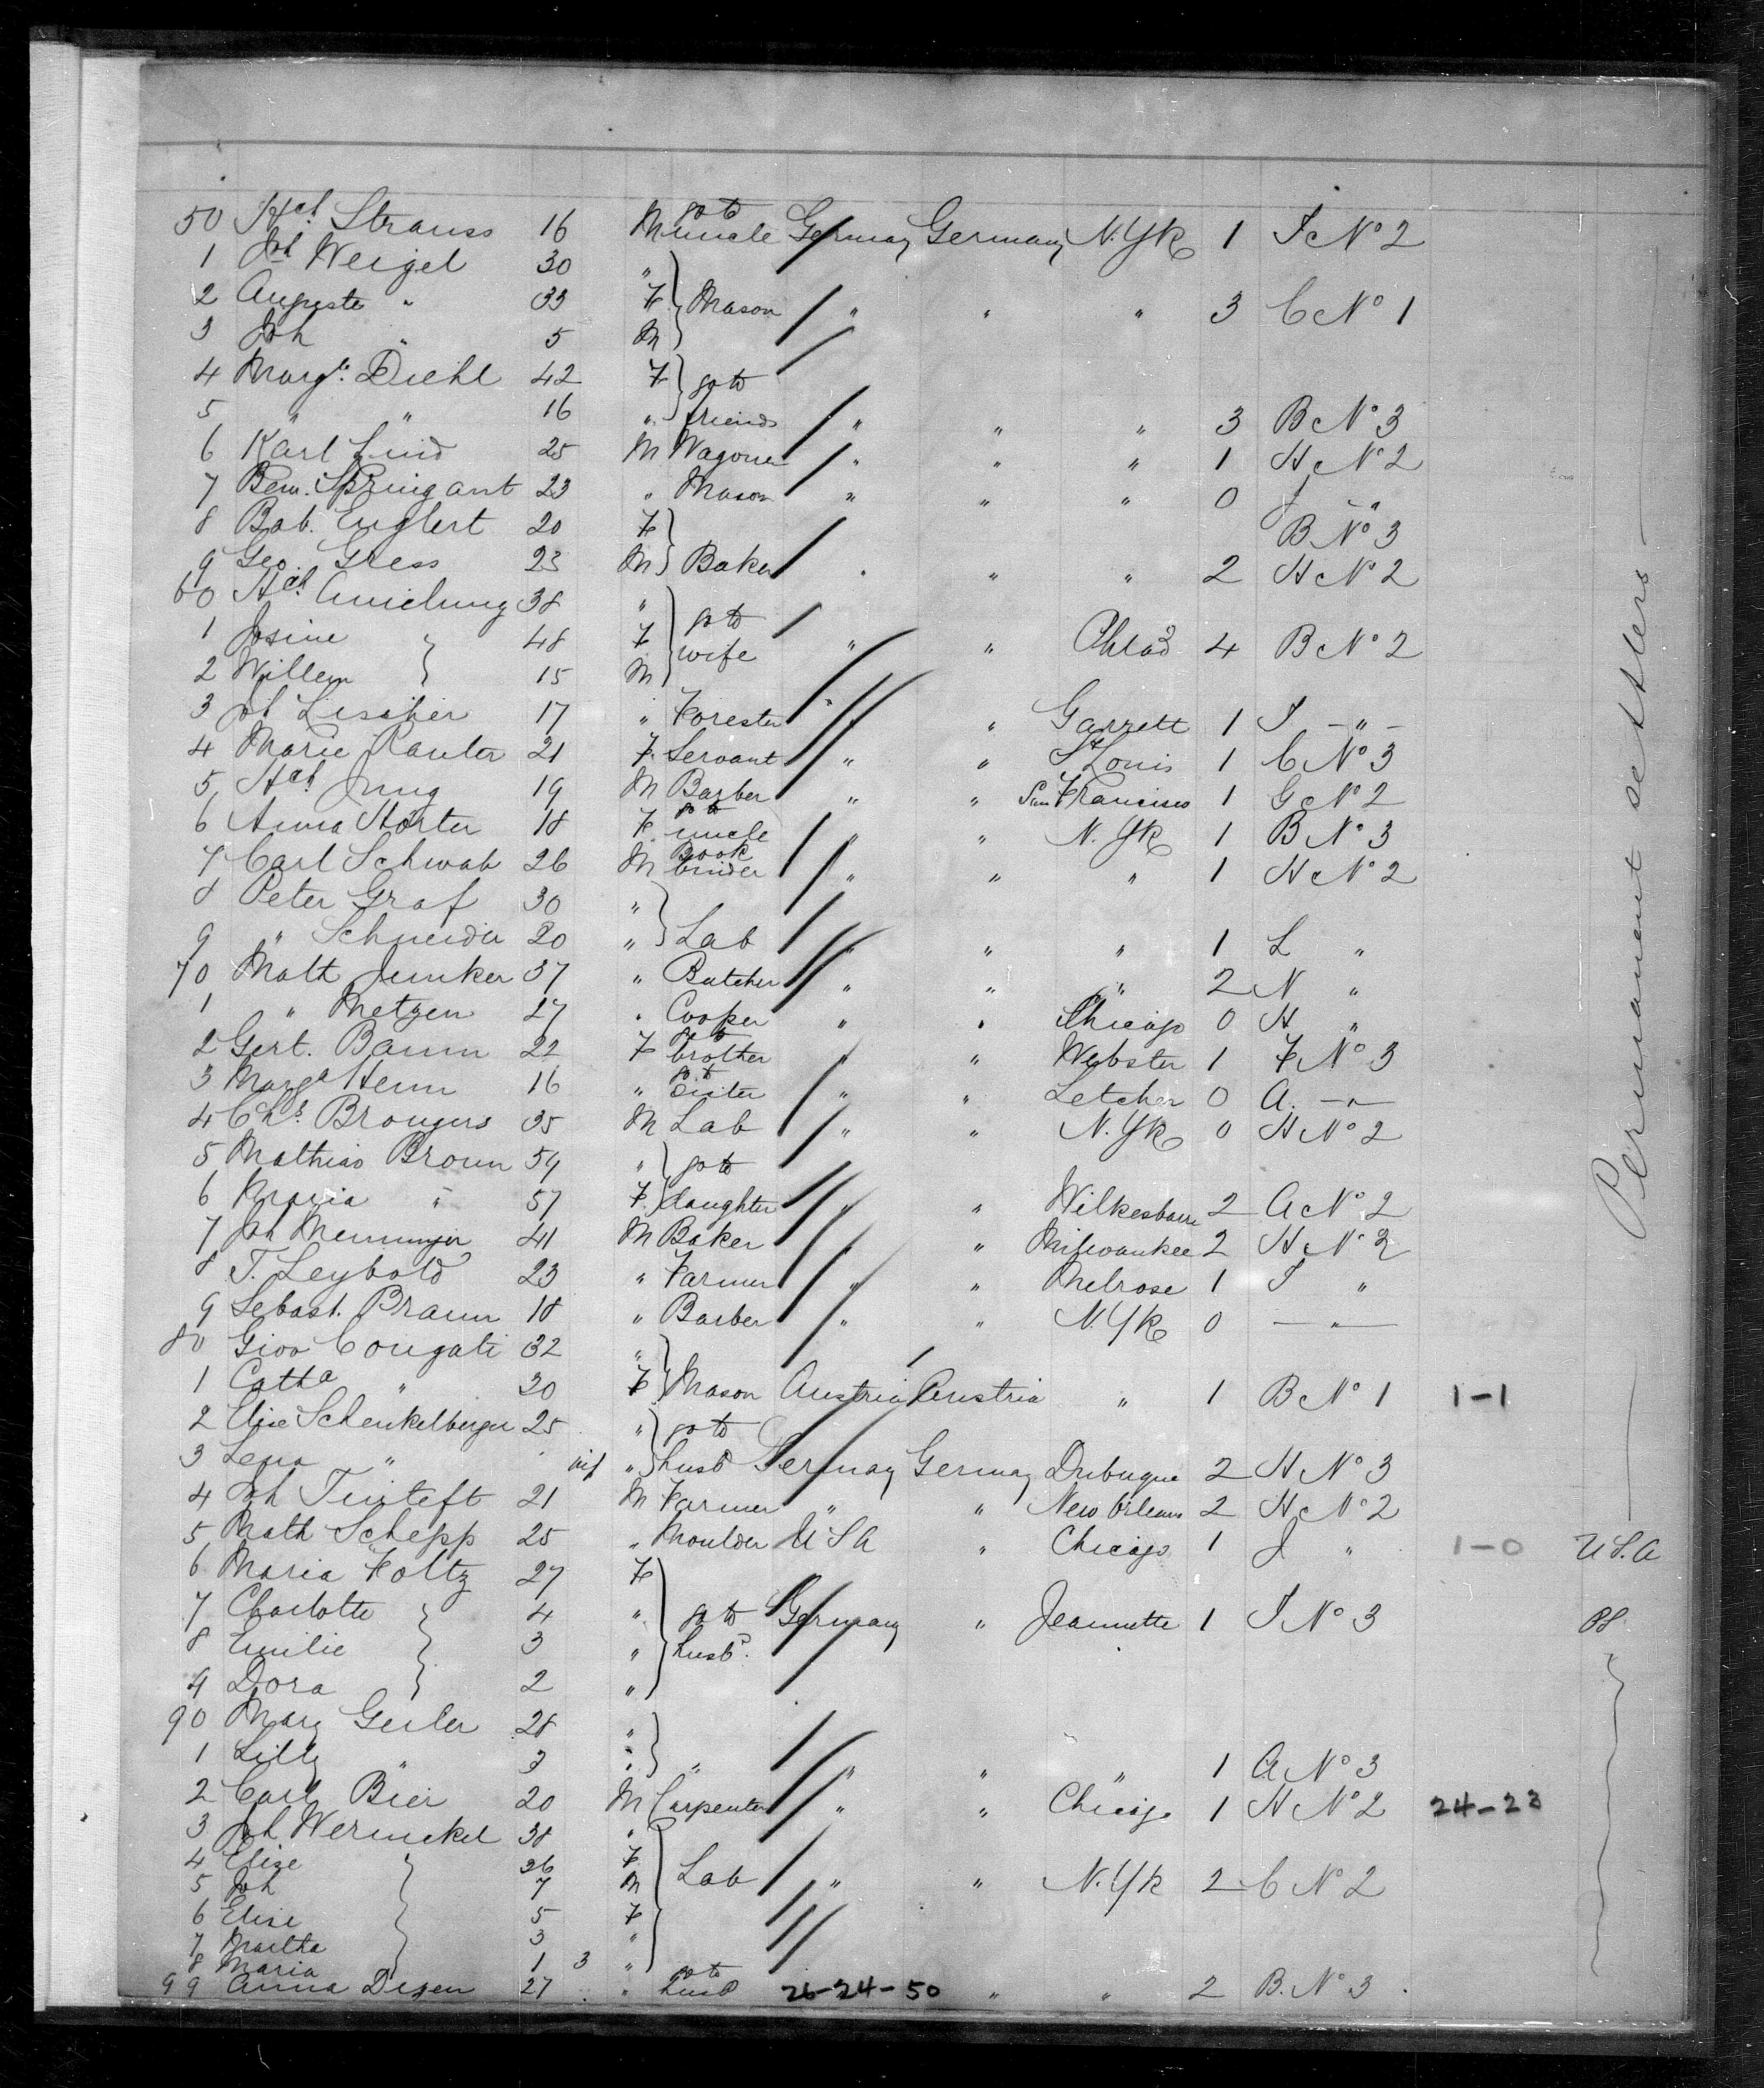 50 Hch. Strauss 16 M go to uncle Germany Germany N.Yk 1 I No 2
1 Joh Weigel 30 "
2 Auguste " 33 F Mason " " " 3 C No 1
3 Joh " 5 M
4 Margte. Diehl 42 F go to
5 " " 16 " friends " " " 3 B No 3
6 Karl Lind 25 M Wagoner " " " 1 H No 2
7 23 " Mason " " " 0 J - " -
8 Bab. Englert 20 F B No 3
9 Geo. Gress 23 M Baker " " " 2 H No 2
60 Hch. 38 " go to
1 Josine 48 F wife " " Phlad 4 B No 2
2 Willem 15 M
3 Joh Lischer 17 " Forester " " Garrett 1 I - " -
4 Marie Rauter 21 F Servant " " St Louis 1 C No 3
5 Hch Jung 19 M Barber " " San Francisco 1 G No 2
6 Anna Hörter 18 F go to uncle " " N.Yk 1 B No 3
7 Carl Schwab 26 M Book binder " " " 1 H No 2
8 Peter Graf 30 "
9 " Schneider 20 " Lab " " " 1 L "
70 Math Junker 37 " Butcher " " " 2 N "
1 " Metzen 27 " Cooper " " Chicago 0 H "
2 Gert. Baum 22 F go to brother " " Webster 1 F No 3
3 Marga Henn 16 " go to sister " " Letcher 0 A. - " -
4 Chs. Brougers 35 M Lab " " N.Yk 0 H No 2
5 Mathias Broun 59 " go to
6 Maria " 57 F daughter " " Wilkesbarre 2 A No 2
7 Joh 41 M Baker " Milwaukee 2 H No 2
8 T. Leybold 23 " Farmer " " Melrose 1 I "
9 Sebast. Braun 18 " Barber " " N.Yk 0 - " -
80 Giov Congati 32 "
1 Catta " 30 F Mason Austria Austria " 1 B No 1 1-1
2 Elise Schenkelberger 25 " go to
3 Lena " inf " husb Germany Germany Dubuque 2 H No 3
4 Joh 21 M Farmer " " New Orleans 2 H No 2
5 Math Schepp 25 " Moulder U S A " Chicago 1 J " 1-0 U S. A
6 Maria Foltz 27 F
7 Charlotte 4 " go to Germany " Jeannette 1 I No 3
8 Emilie 3 " husbd.
9 Dora 2 "
90 Marg Geiler 28 "
1 Lilly " 3 " " " " " 1 A No 3
2 Carl Bier 20 M Carpenter " " Chicago 1 H No 2 24-23
3 Joh Wernickel 38 "
4 Elise 36 F
5 Joh 7 M Lab " " N.Yk 2 C No 2
6 Elise 5 F
7 Martha 3 "
8 Maria 1 3 "
99 Anna Degen 27 " go to husb 26-24-50 " " 2 B. No 3
Permanent settlers